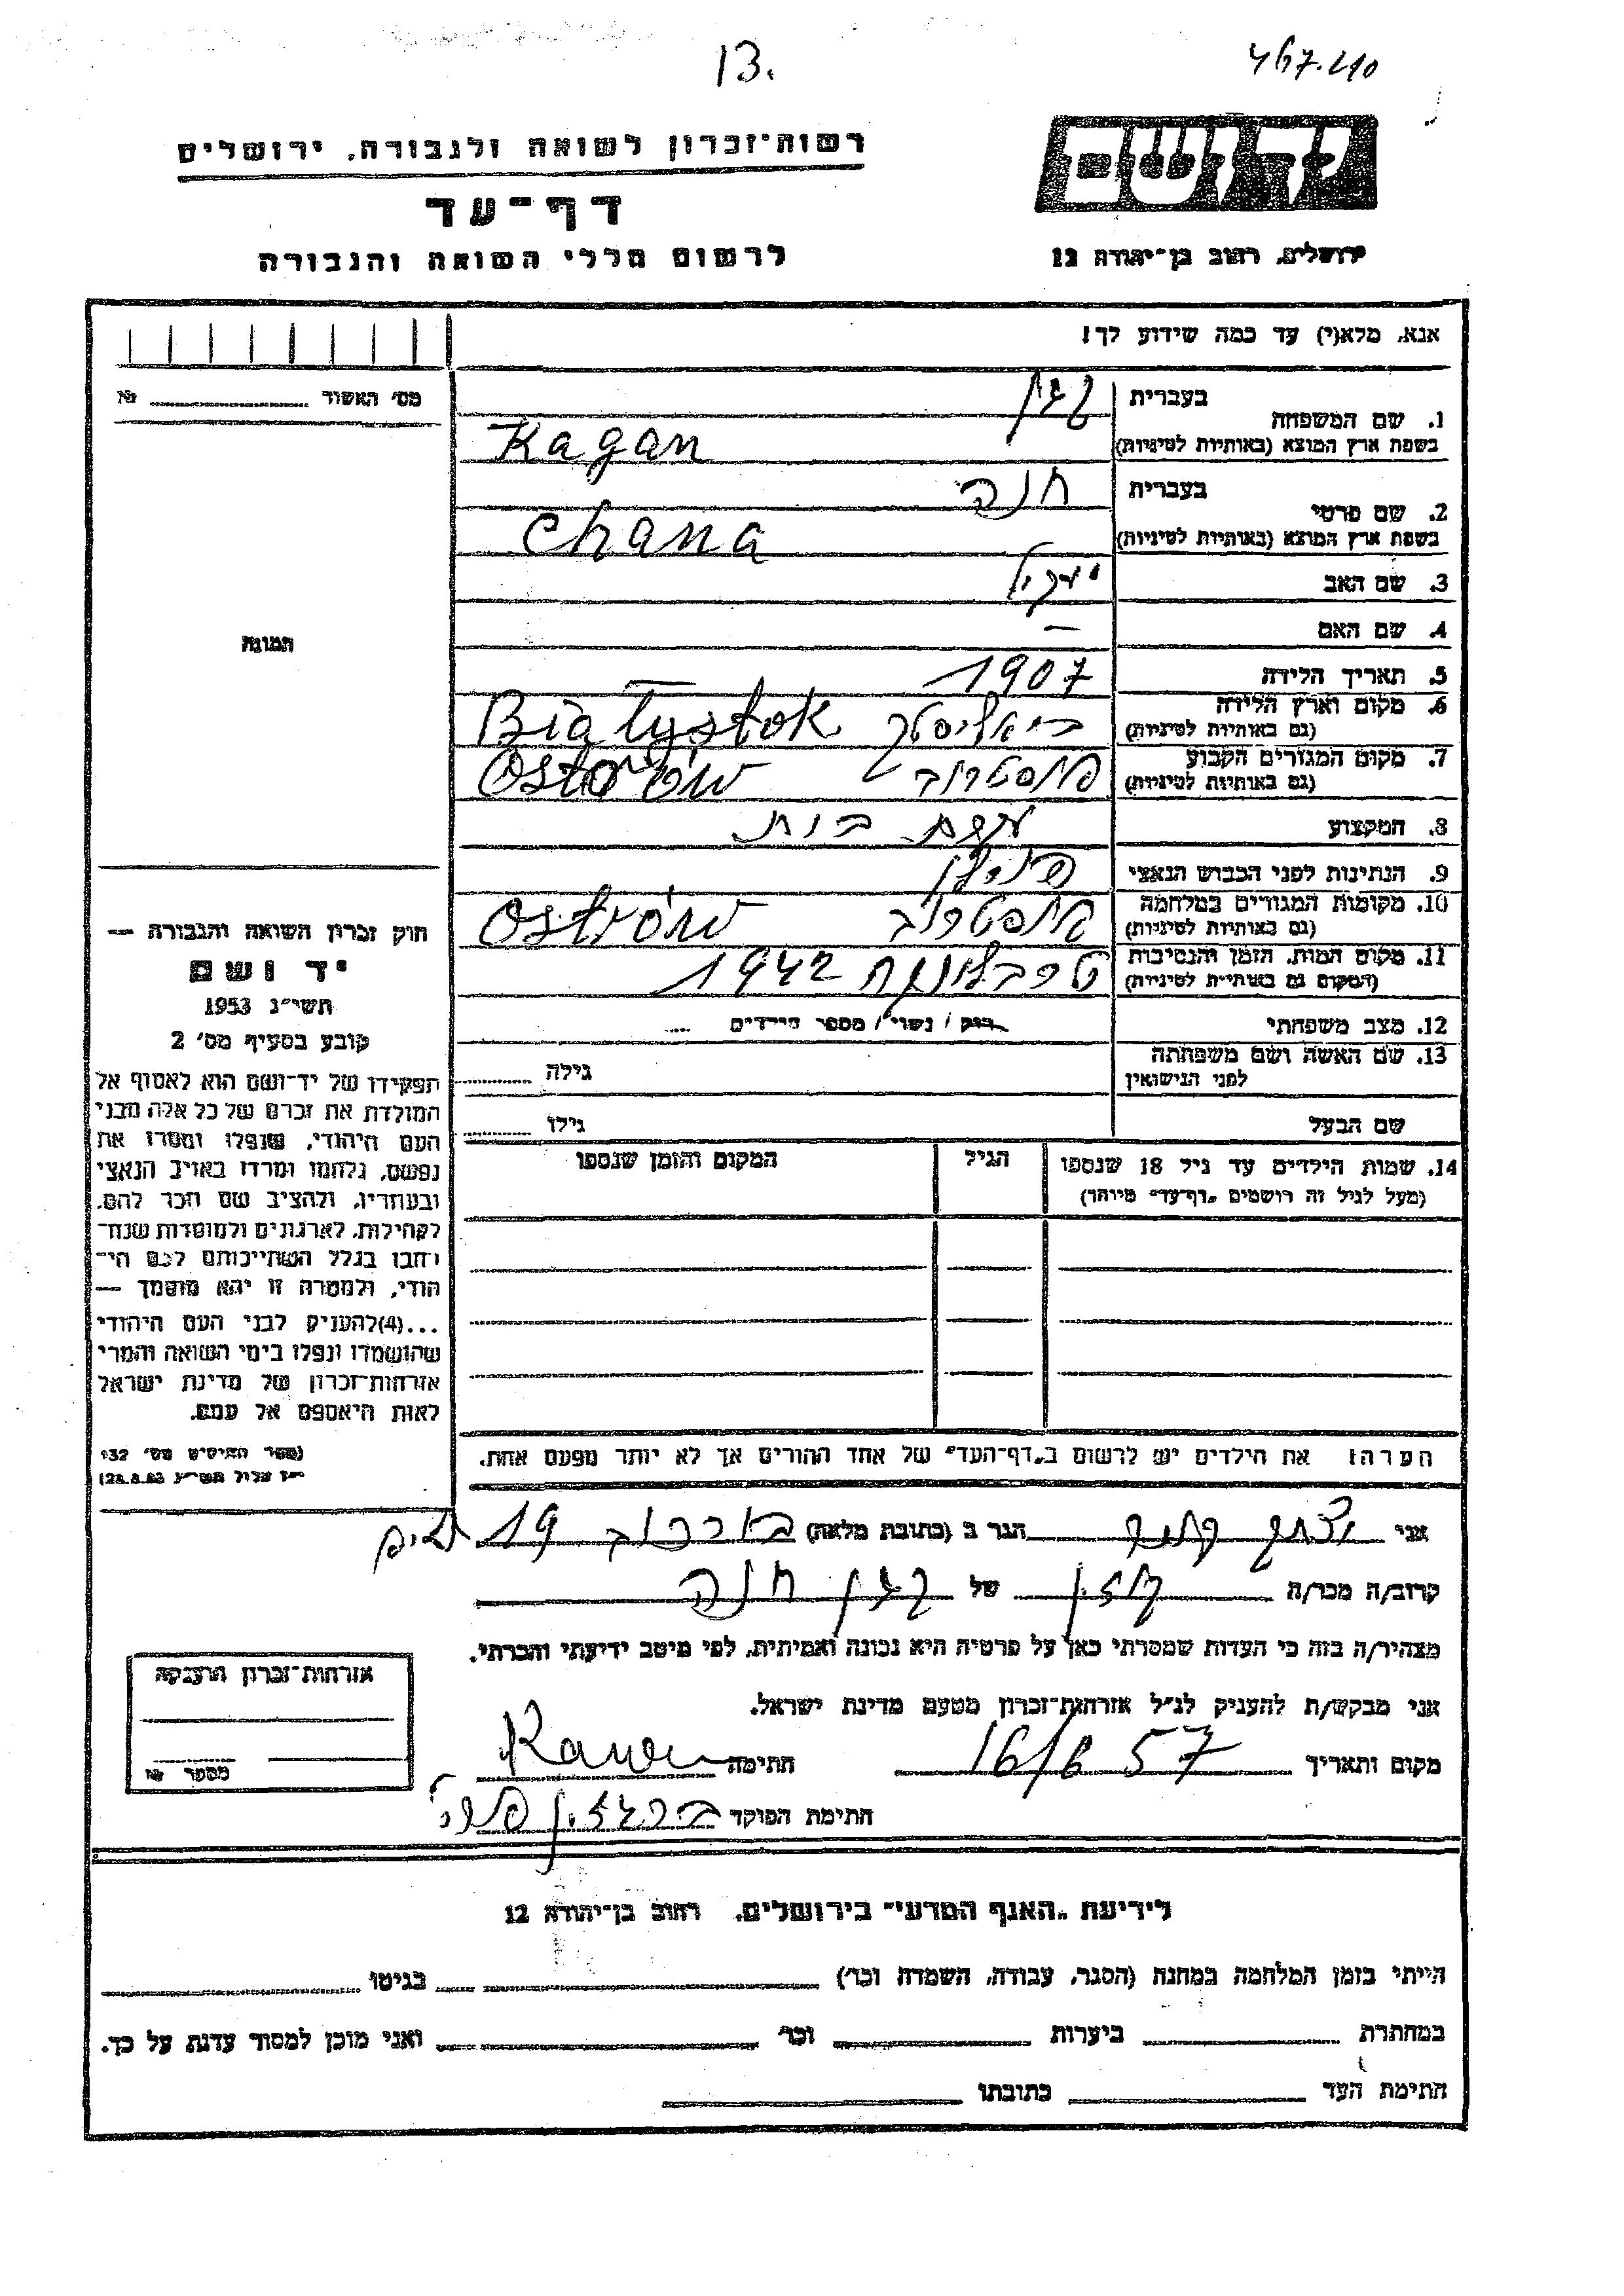 13.
467.210
יד ושם
רשות־זכרון לשואה ולגבורה, ירושלים
דף־עד
לרשום חללי השואה והגבורה
ירושלים, רחוב בן־יהודה 12
אנא, מלא(י) עד כמה שידוע לך!
מס׳ האשור № 
1. שם המשפחה
בעברית
קגן
בשפת ארץ המוצא (באותיות לטיניות)
Kagan
2. שם פרטי
בעברית
חנה
בשפת ארץ המוצא (באותיות לטיניות)
Chana
3. שם האב
4. שם האם —
5. תאריך הלידה 1907
6. מקום וארץ הלידה
(גם באותיות לטיניות)
ביאליסטק Białystok
7. מקום המגורים הקבוע
(גם באותיות לטיניות)
אוסטרוב Ostrów
8. המקצוע עקרת בית
9. הנתינות לפני הכבוש הנאצי פולין
10. מקומות המגורים במלחמה
(גם באותיות לטיניות)
אוסטרוב Ostrów
11. מקום המות, הזמן והנסיבות
(המקום גם באותיות לטיניות)
טרבלינקה 1942
12. מצב משפחתי
רווק / נשוי / מספר הילדים ...
13. שם האשה ושם משפחתה
לפני הנישואין
גילה
שם הבעל
גילו
14. שמות הילדים עד גיל 18 שנספו
(מעל לגיל זה רושמים „דף־עד״ מיוחד)
הגיל
המקום והזמן שנספו
הערה: את הילדים יש לרשום ב„דף־העד״ של אחד ההורים אך לא יותר מפעם אחת.
תמונה
חוק זכרון השואה והגבורה —
יד ושם
תשי״ג 1953
קובע בסעיף מס׳ 2
תפקידו של יד־ושם הוא לאסוף אל
המולדת את זכרם של כל אלה מבני
העם היהודי, שנפלו ומסרו את
נפשם, נלחמו ומרדו באויב הנאצי
ובעוזריו, ולהציב שם וזכר להם,
לקהילות, לארגונים ולמוסדות שנח־
רבו בגלל השתייכותם לעם הי־
הודי, ולמטרה זו יהא מוסמך —
...(4) להעניק לבני העם היהודי
שהושמדו ונפלו בימי השואה והמרי
אזרחות־זכרון של מדינת ישראל
לאות היאספם אל עמם.
(ספר החוקים מס׳ 132
י״ז אלול תשי״ג 28.8.53)
אני
הגר ב (כתובת מלאה) 19
קרוב/ה מכר/ה של קגן חנה
מצהיר/ה בזה כי העדות שמסרתי כאן על פרטיה היא נכונה ואמיתית, לפי מיטב ידיעתי והכרתי.
אני מבקש/ת להעניק לנ״ל אזרחות־זכרון מטעם מדינת ישראל.
מקום ותאריך 16/6 57 חתימה
חתימת הפוקד
אזרחות־זכרון הוענקה
מספר №
לידיעת „האגף המדעי״ בירושלים, רחוב בן־יהודה 12
הייתי בזמן המלחמה במחנה (הסגר, עבודה, השמדה וכו׳) בגיטו
במחתרת ביערות וכו׳ ואני מוכן למסור עדות על כך.
חתימת העד כתובתו